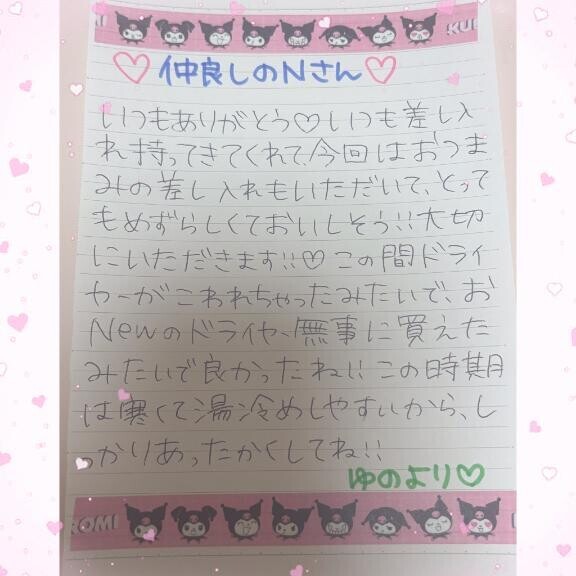 KUR
♡仲良しのNさん♡
いつもありがとう♡いつも差し入
れ持ってきてくれて、今回はおつま
みの差し入れもいただいて、とって
もめずらしくておいしそう!!大切
にいただきます!!♡この間ドライ
ヤーがこわれちゃったみたいで、お
Newのドライヤー無事に買えた
みたいで良かったね!!この時期
は寒くて湯冷めしやすいから、し
っかりあったかくしてね!!
ゆのより♡
ROMI